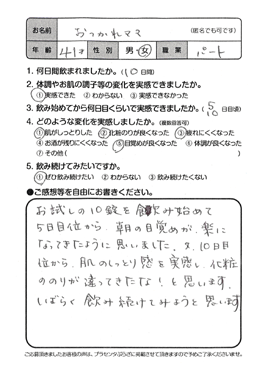 お名前 おつかれママ (匿名でも可です)
年齢 41才 性別 男・女 職業 パート
1. 何日間飲まれましたか。(10日間)
2. 体調やお肌の調子等の変化を実感できましたか。
①実感できた ②わからない ③実感できなかった
3. 飲み始めてから何日目くらいで実感できましたか。(5 10 日目頃)
4. どのような変化を実感しましたか。(複数回答可)
①肌がしっとりした ②化粧のりが良くなった ③疲れにくくなった
④お酒が残りにくくなった ⑤目覚めが良くなった ⑥体調が良くなった
⑦その他(
5. 飲み続けてみたいですか。
①ぜひ飲み続けたい ②わからない ③飲み続けたくない
●ご感想等を自由にお書きください。
お試しの10錠を飲み始めて
5日目位から、朝の目覚めが、楽に
なってきたように思いました。又、10日目
位から、肌のしっとり感を実感し、化粧
ののりが違ってきたな!と思います。
しばらく飲み続けてみようと思います
ご応募頂きましたお客様の声は、プラセンタぷらざに掲載させて頂きますので予めご了承くださいませ。